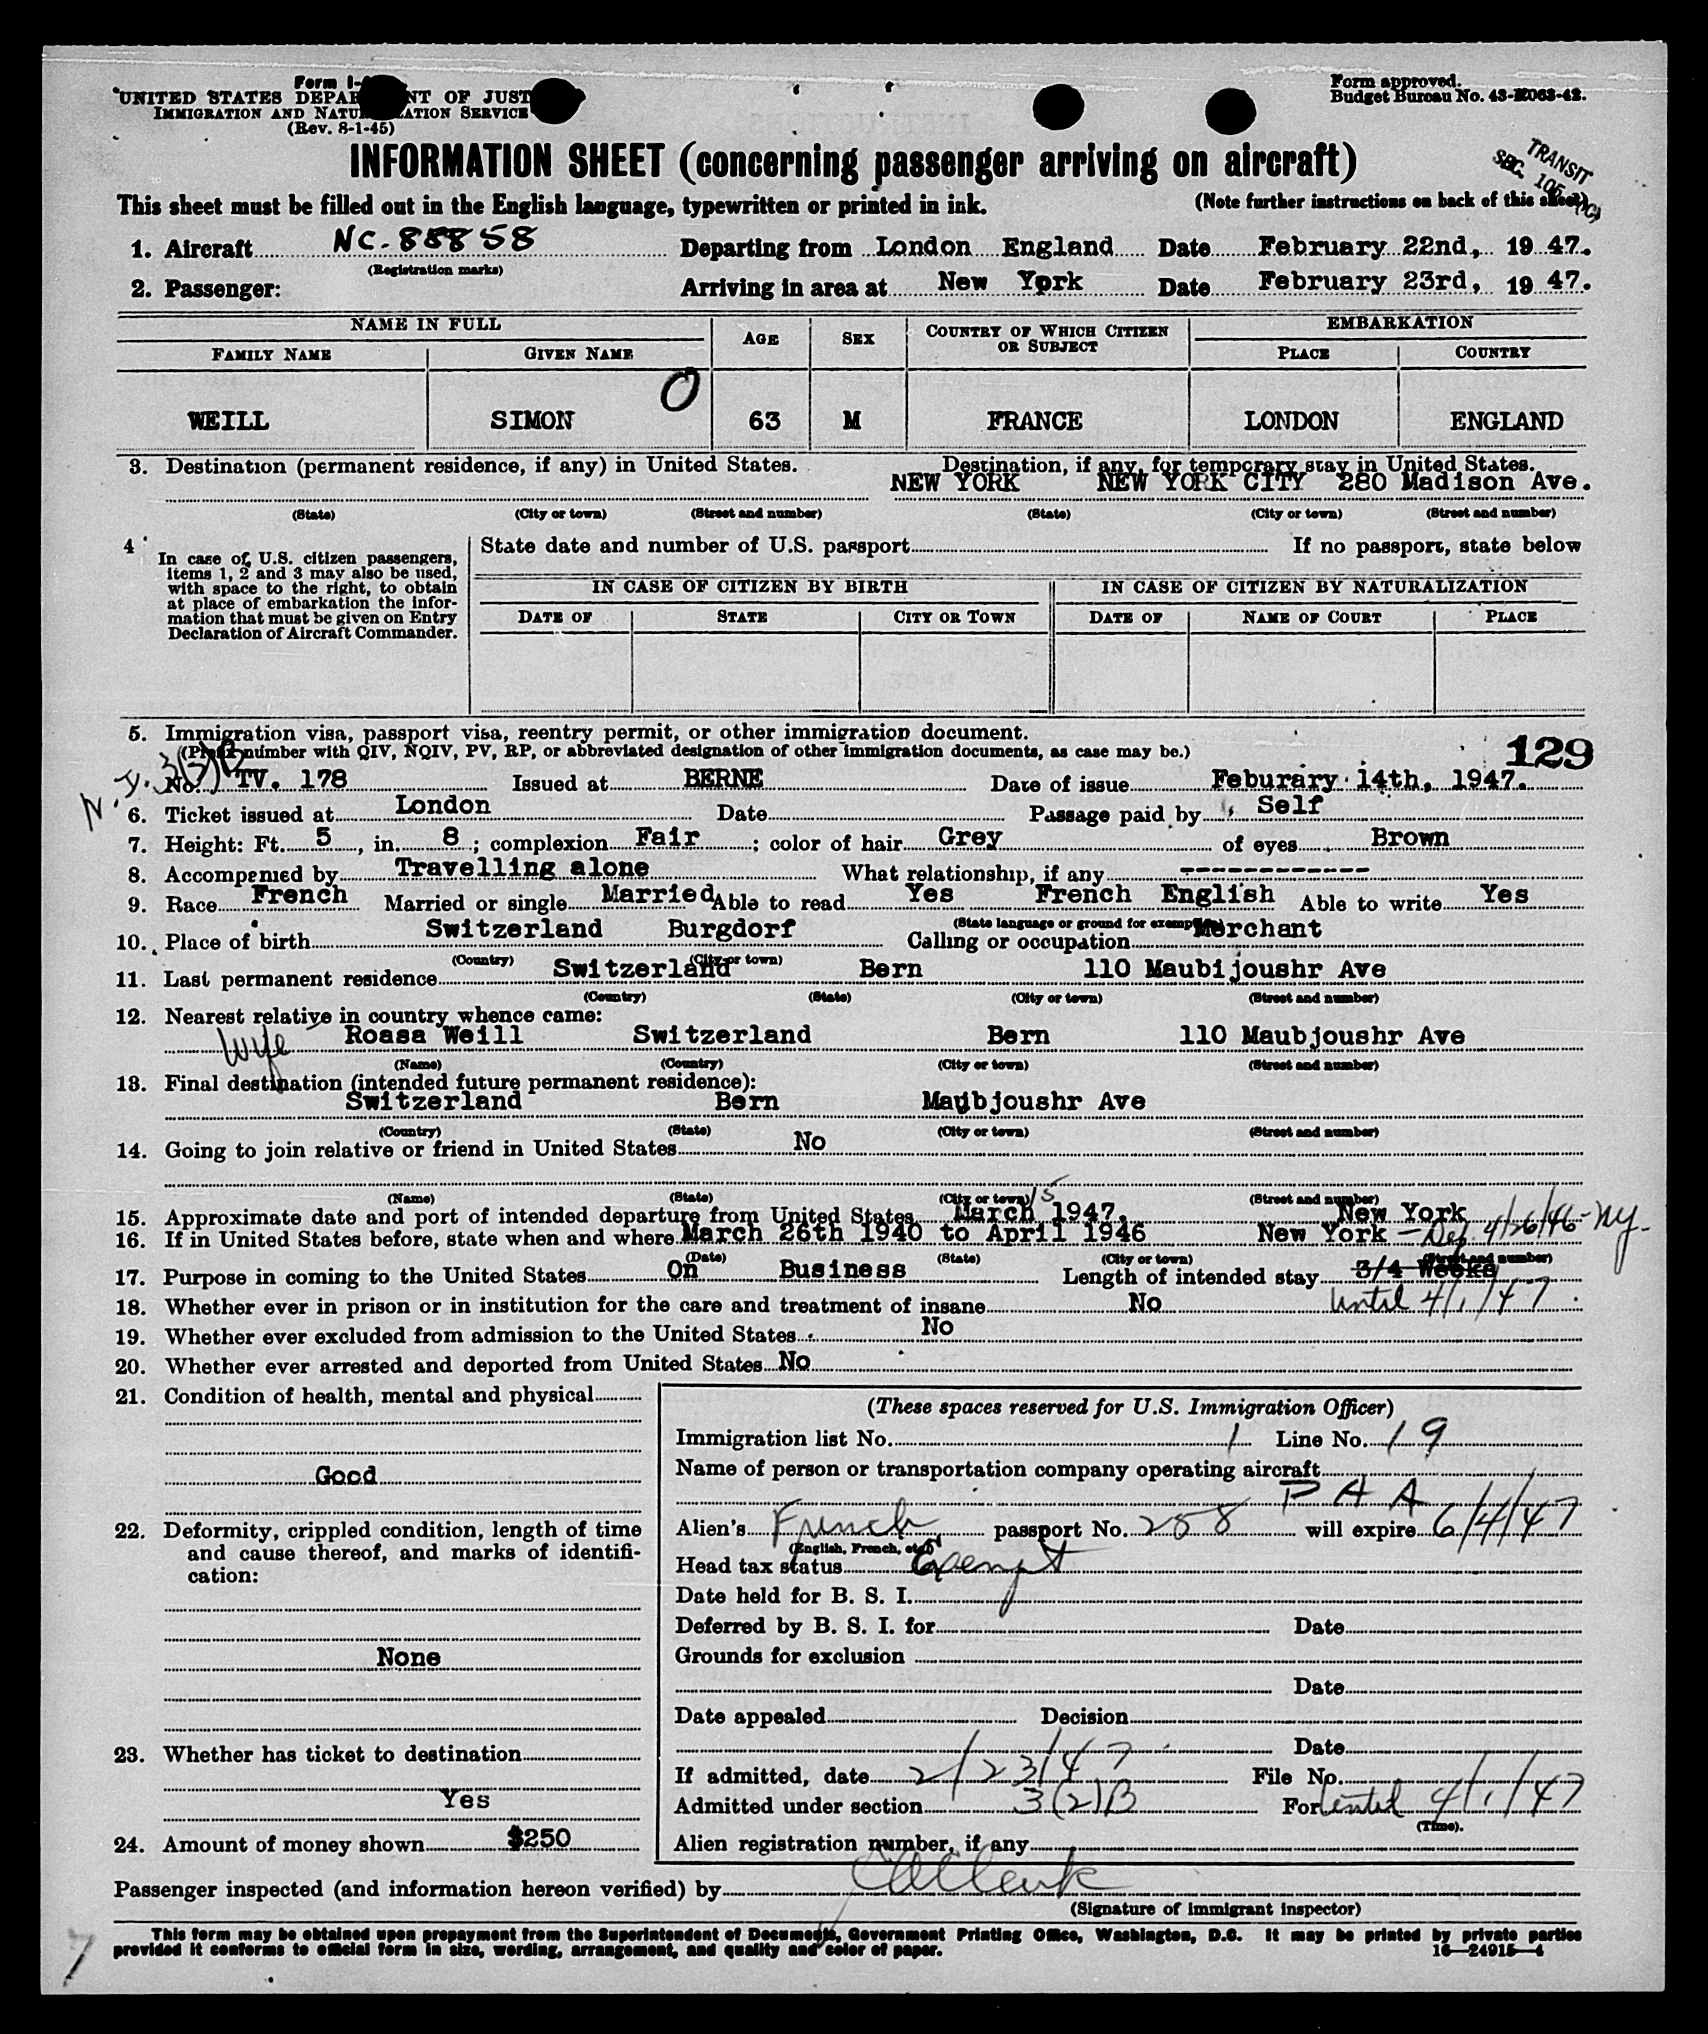 Form I-
UNITED STATES DEPAR NT OF JUST
IMMIGRATION AND NATU ATION SERVICE
(Rev. 8-1-45)
Form approved.
Budget Bureau No. 43-R063-42.
TRANSIT
SEC.
INFORMATION SHEET (concerning passenger arriving on aircraft)
This sheet must be filled out in the English language, typewritten or printed in ink. (Note further instructions on back of this sheet)
1. Aircraft NC-88858 Departing from London England Date February 22nd, 19 47.
(Registration marks)
2. Passenger: Arriving in area at New York Date February 23rd, 19 47.
NAME IN FULL AGE SEX COUNTRY OF WHICH CITIZEN OR SUBJECT EMBARKATION
FAMILY NAME GIVEN NAME PLACE COUNTRY
0
WEILL SIMON 63 M FRANCE LONDON ENGLAND
3. Destination (permanent residence, if any) in United States. Destination, if any, for temporary stay in United States.
NEW YORK NEW YORK CITY 280 Madison Ave.
(State) (City or town) (Street and number) (State) (City or town) (Street and number)
4
In case of U.S. citizen passengers,
items 1, 2 and 3 may also be used,
with space to the right, to obtain
at place of embarkation the infor-
mation that must be given on Entry
Declaration of Aircraft Commander.
State date and number of U.S. passport If no passport, state below
IN CASE OF CITIZEN BY BIRTH IN CASE OF CITIZEN BY NATURALIZATION
DATE OF STATE CITY OR TOWN DATE OF NAME OF COURT PLACE
5. Immigration visa, passport visa, reentry permit, or other immigration document.
(Prefix number with QIV, NQIV, PV, RP, or abbreviated designation of other immigration documents, as case may be.) 129
N.Y. 3(2)B
No. TV. 178 Issued at BERNE Date of issue Feburary 14th, 1947.
6. Ticket issued at London Date Passage paid by Self
7. Height: Ft. 5, in. 8; complexion Fair; color of hair Grey of eyes Brown
8. Accompenied by Travelling alone What relationship, if any ------------
9. Race French Married or single Married Able to read Yes French English Able to write Yes
(State language or ground for exemption)
10. Place of birth Switzerland Burgdorf Calling or occupation Merchant
(Country) (City or town)
11. Last permanent residence Switzerland Bern 110 Maubijoushr Ave
(Country) (State) (City or town) (Street and number)
12. Nearest relative in country whence came:
Wife Roasa Weill Switzerland Bern 110 Maubjoushr Ave
(Name) (Country) (City or town) (Street and number)
13. Final destination (intended future permanent residence):
Switzerland Bern Maubjoushr Ave
(Country) (State) (City or town) (Street and number)
14. Going to join relative or friend in United States No
(Name) (State) (City or town) (Street and number)
15. Approximate date and port of intended departure from United States March 15 1947. New York
16. If in United States before, state when and where March 26th 1940 to April 1946 New York - Dep. 4/26/46-NY.
(Date) (State) (City or town) (Street and number)
17. Purpose in coming to the United States On Business Length of intended stay 3/4 Weeks
until 4/1/47
18. Whether ever in prison or in institution for the care and treatment of insane No
19. Whether ever excluded from admission to the United States No
20. Whether ever arrested and deported from United States No
21. Condition of health, mental and physical
Good
22. Deformity, crippled condition, length of time
and cause thereof, and marks of identifi-
cation:
None
23. Whether has ticket to destination
Yes
24. Amount of money shown $250
(These spaces reserved for U.S. Immigration Officer)
Immigration list No. 1 Line No. 19
Name of person or transportation company operating aircraft
PAA
Alien's French passport No. 258 will expire 6/4/47
(English, French, etc.)
Head tax status Exempt
Date held for B. S. I.
Deferred by B. S. I. for Date
Grounds for exclusion
Date
Date appealed Decision
Date
If admitted, date 2/23/47 File No.
Admitted under section 3(2)B For until 4/1/47
(Time).
Alien registration number, if any
Passenger inspected (and information hereon verified) by
(Signature of immigrant inspector)
This form may be obtained upon prepayment from the Superintendent of Documents, Government Printing Office, Washington, D.C. It may be printed by private parties
provided it conforms to official form in size, wording, arrangement, and quality and color of paper. 16—24915-4
7